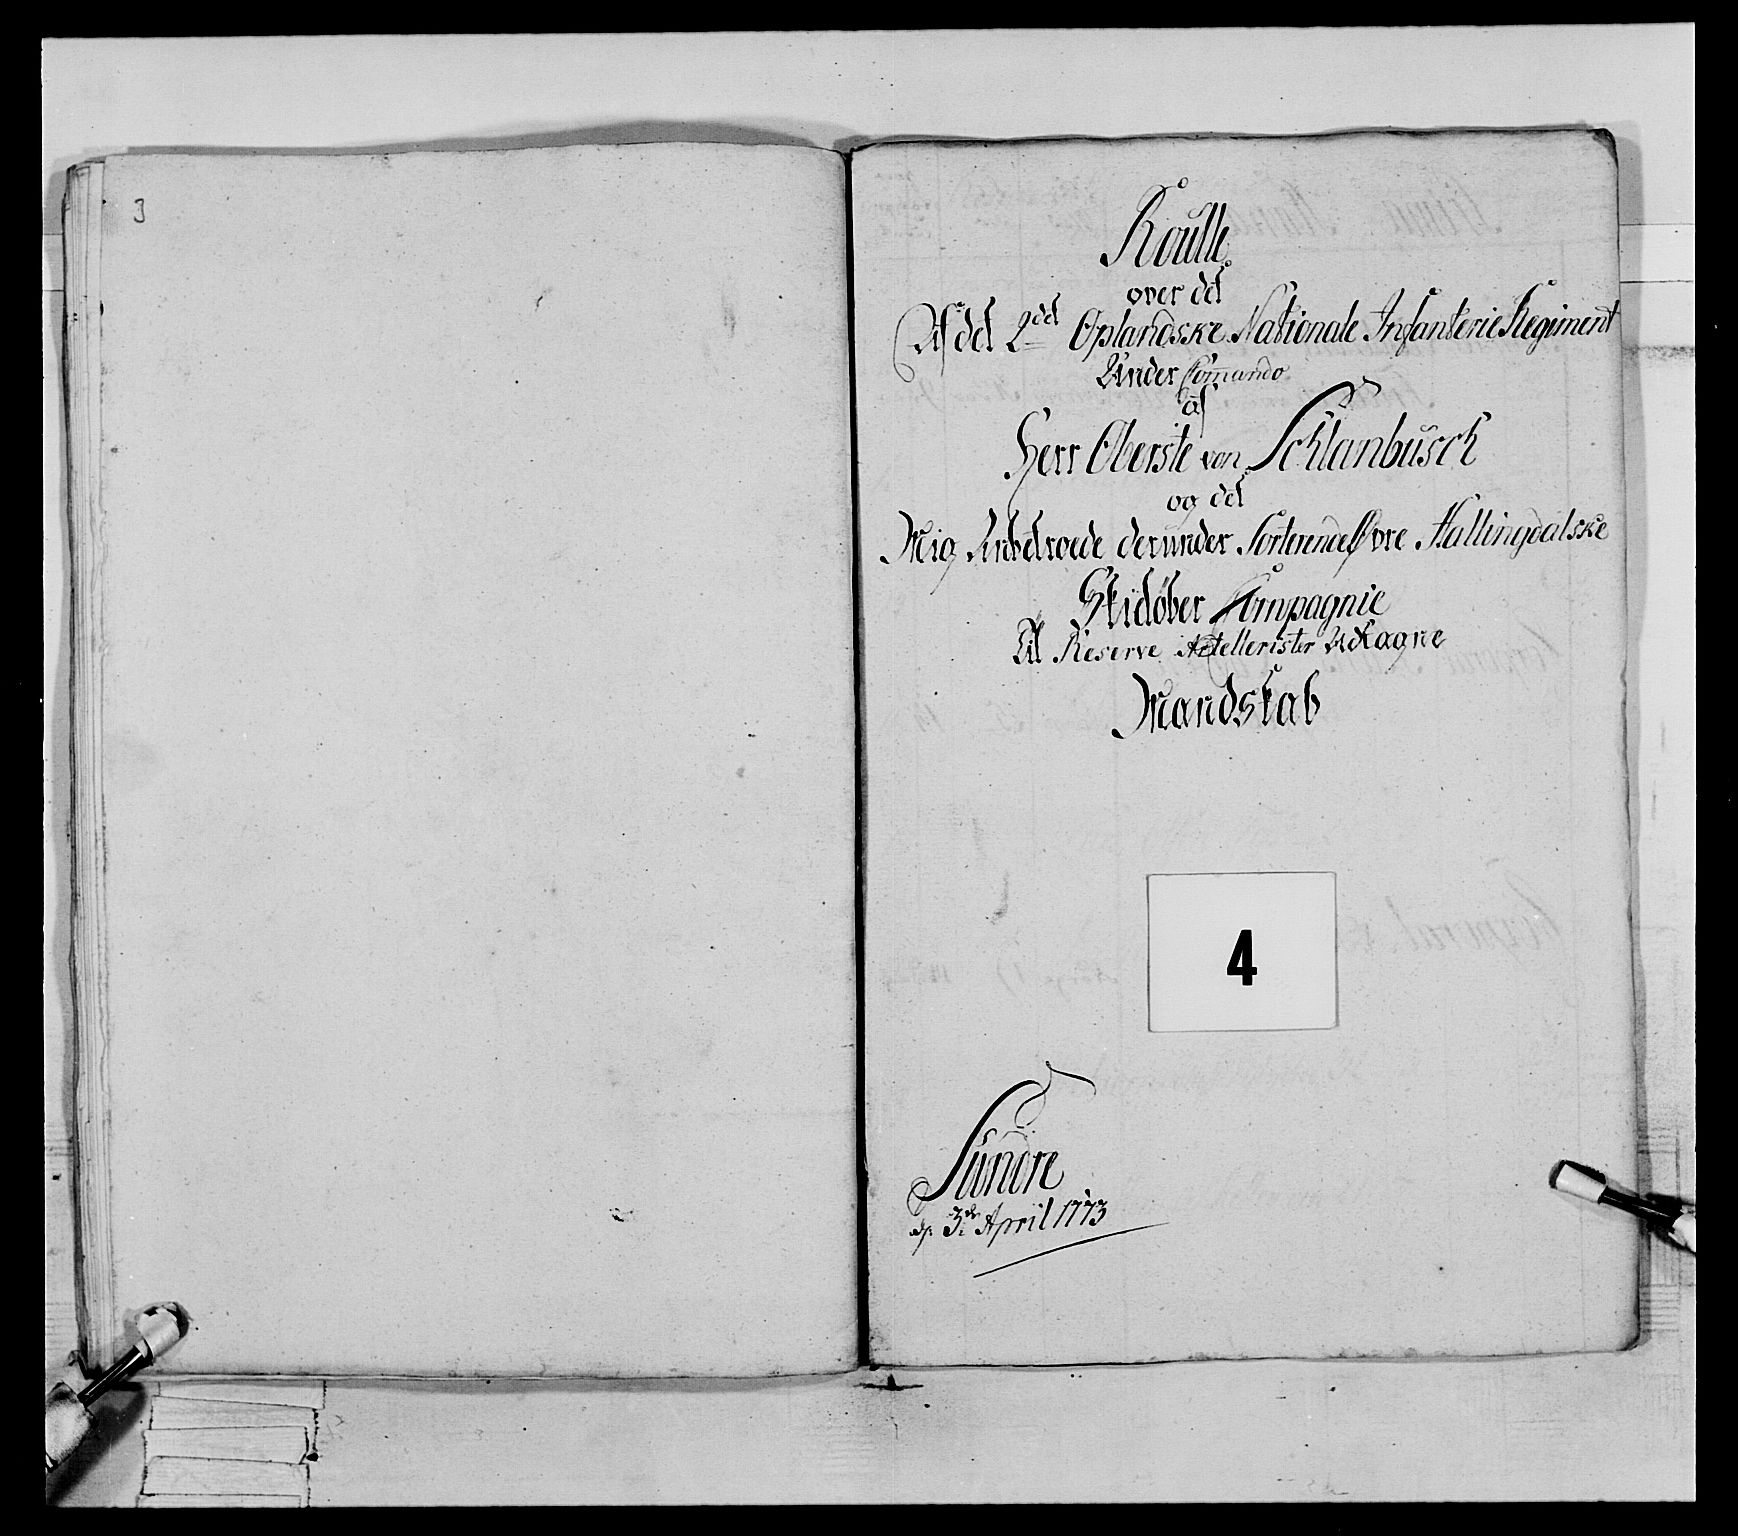 3
Roulle
over det
Af det 2det Oplandske Nationale Infanterie Regiment
Under Com̄ando
af
Herr Oberste von Schlanbusch
og det
Mig Anbetroede derunder Sorterende Øvre Hallingdalske
Skidløber Compagnie
til Reserve Artellerister Udtagne
Mandskab
4
Sundre
d. 3de April 1773